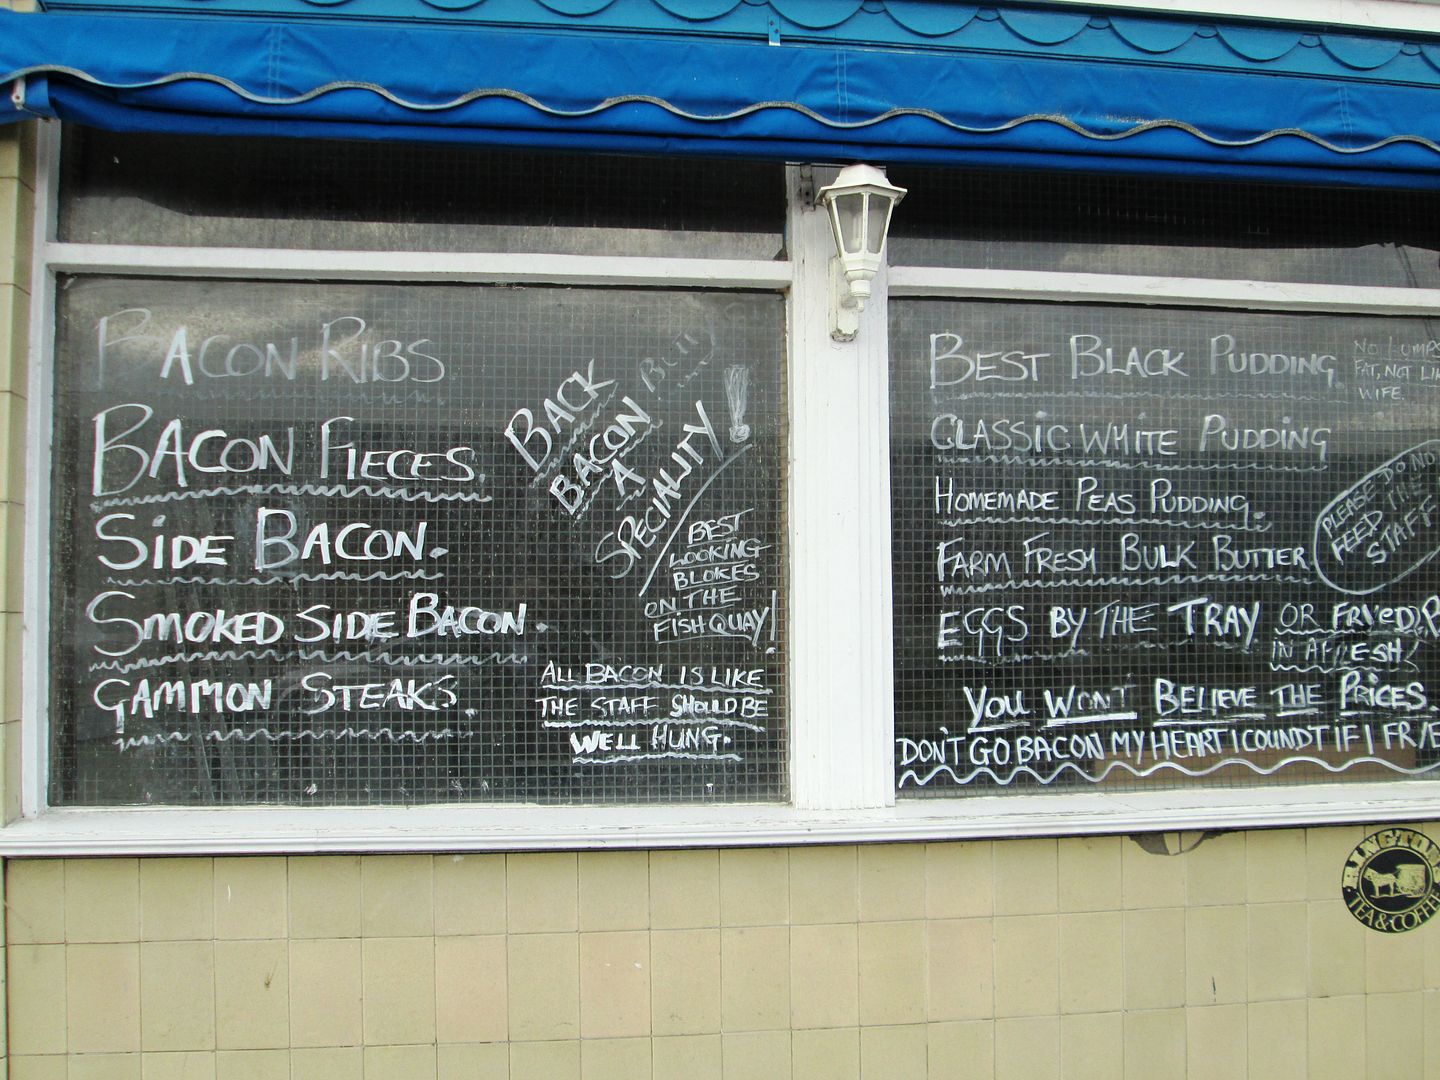 BACON RIBS
BACON PIECES.
SiDE BACON.
SMOKED SIDE BACON.
GAMMON STEAKS.
BACK
BACON
A
SPECIALITY!
BEST
LOOKING
BLOKES
ON THE
FISH QUAY!
ALL BACON IS LIKE
THE STAFF SHOULD BE
WELL HUNG.
BEST BLACK PUDDING.
NO LUMPS
FAT, NOT LIK
WIFE.
CLASSIC WHITE PUDDING
HOMEMADE PEAS PUDDING.
FARM FRESH BULK BUTTER
PLEASE DO NOT
FEED THE
STAFF
EGGS BY THE TRAY
OR FRiED
IN A FLESH!
YOU WON'T BELIEVE THE PRICES
DON'T GO BACON MY HEART I COUNDT IF I FRIE
RINGTON
TEA & COFFEE